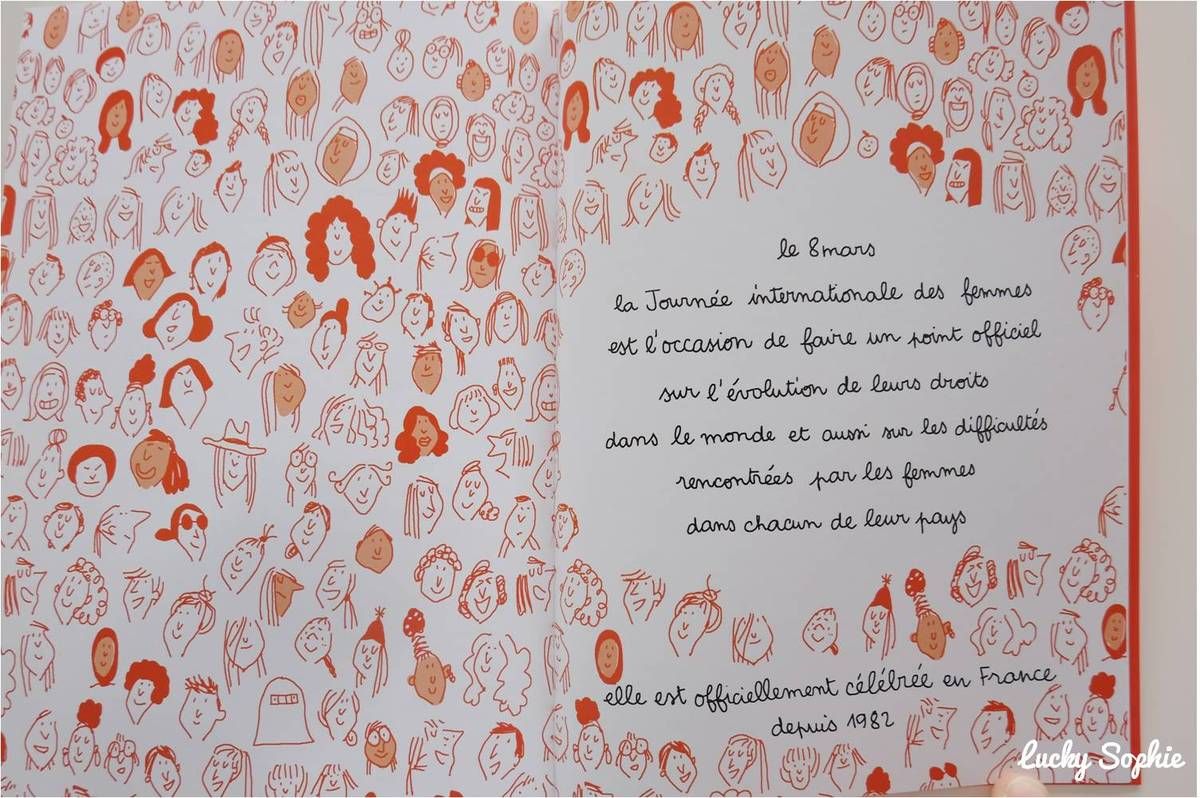 le 8 mars
la Journée internationale des femmes
est l'occasion de faire un point officiel
sur l'évolution de leurs droits
dans le monde et aussi sur les difficultés
rencontrées par les femmes
dans chacun de leur pays
elle est officiellement célébrée en France
depuis 1982
Lucky Sophie